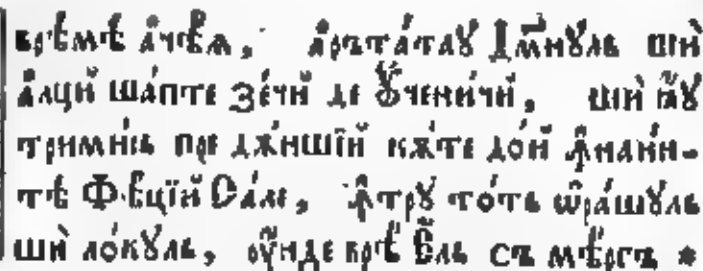 врѣ́мѣ а҆чѣ́ѧ, а҆рътáтаꙋ Дⷨ҇нꙋль шѝ
а҆лци́й шáпте зе́чй де ᲂу҆ченичй, шѝ ꙗ҆ꙋ
тримúсь пре дѫ́ншїй кѫ́те дóй ꙟ҆наин-
тѣ Фѣ́цїй Сáле, ꙟ҆трꙋ тóть ѡ҆рáшꙋль
шѝ лóкꙋль, ᲂу҆́нде врѣ̀ Є҆́ль съ мѣ́ргъ *